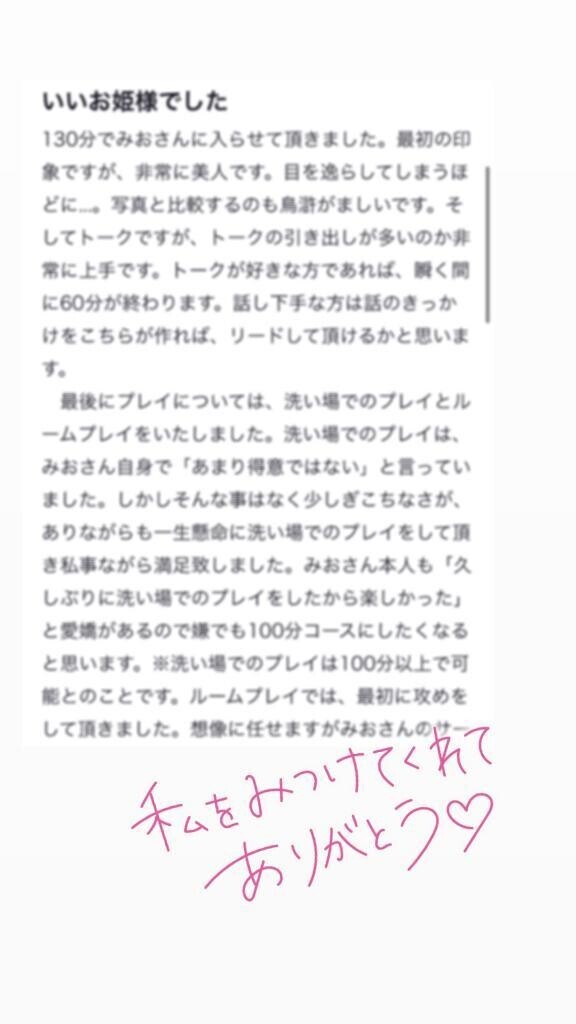 いいお姫様でした
130分でみおさんに入らせて頂きました。最初の印
象ですが、非常に美人です。目を逸らしてしまうほ
どに...。写真と比較するのも烏滸がましいです。そ
してトークですが、トークの引き出しが多いのか非
常に上手です。トークが好きな方であれば、瞬く間
に60分が終わります。話し下手な方は話のきっか
けをこちらが作れば、リードして頂けるかと思いま
す。
最後にプレイについては、洗い場でのプレイとル
ームプレイをいたしました。洗い場でのプレイは、
みおさん自身で「あまり得意ではない」と言ってい
ました。しかしそんな事はなく少しぎこちなさが、
ありながらも一生懸命に洗い場でのプレイをして頂
き私事ながら満足致しました。みおさん本人も「久
しぶりに洗い場でのプレイをしたから楽しかった」
と愛嬌があるので嫌でも100分コースにしたくなる
と思います。※洗い場でのプレイは100分以上で可
能とのことです。ルームプレイでは、最初に攻めを
して頂きました。想像に任せますがみおさんのサー
私をみつけてくれて
ありがとう♡